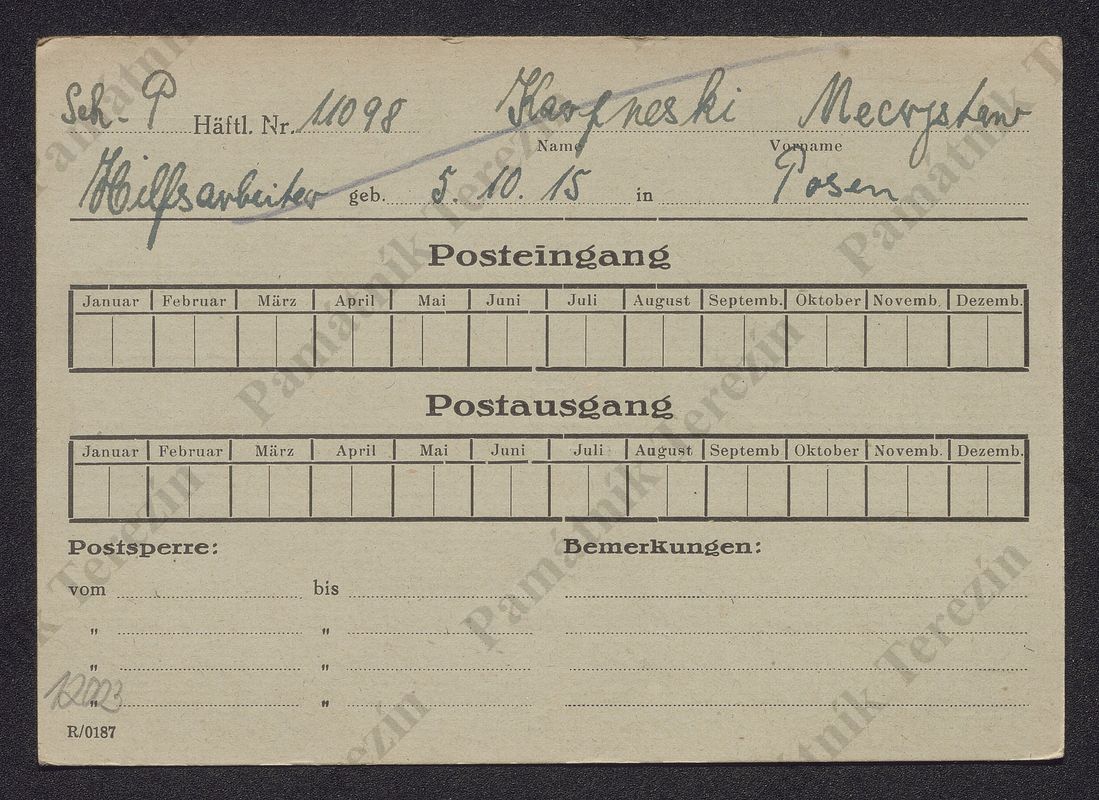 Sch. P Häftl. Nr. 11098 Karpneski Mecrystaw
Name Vorname
Hilfsarbeiter geb. 5. 10. 15 in Posen
Posteingang
Januar Februar März April Mai Juni Juli August Septemb. Oktober Novemb. Dezemb.
Postausgang
Januar Februar März April Mai Juni Juli August Septemb Oktober Novemb. Dezemb.
Postsperre: Bemerkungen:
vom bis
" "
" "
" "
12003
R/0187
Památník Terezín